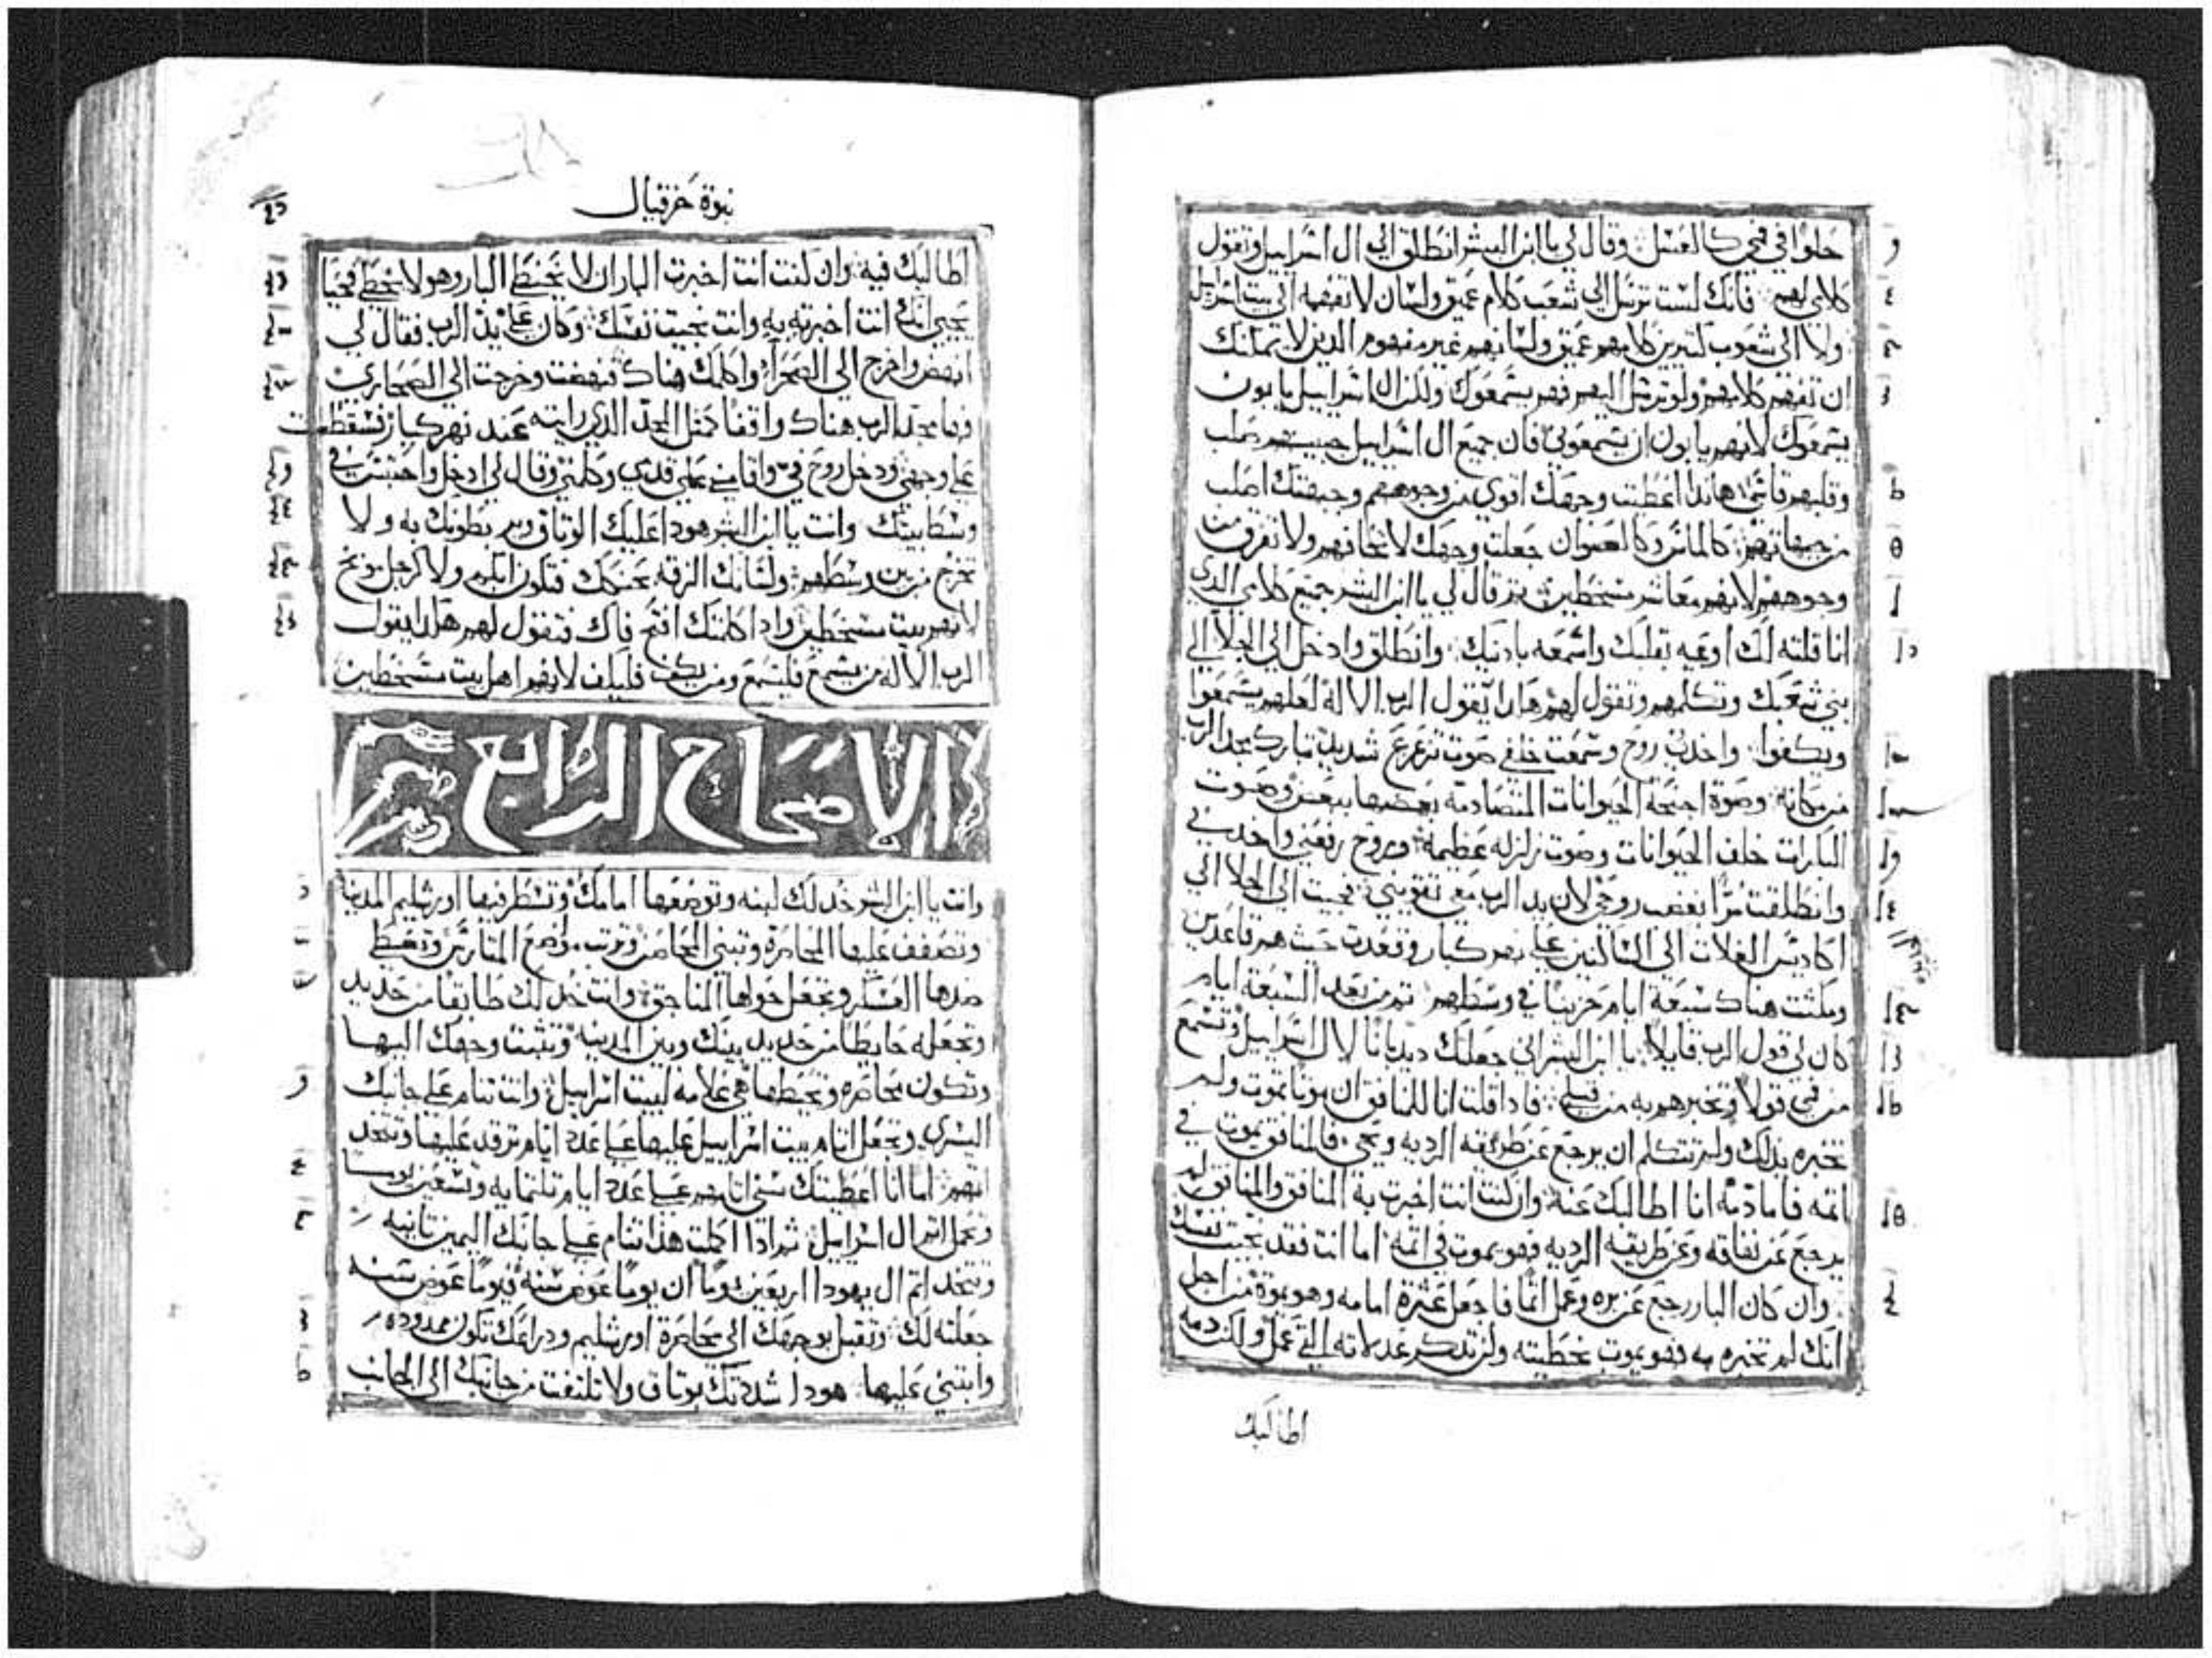 حلوا في فمي كالعسل وقال لي يا ابن البشر انطلق الي ال اسراييل وتقول
كلامي لهم فانك لست ترسل الي شعب كلام عميق ولسان لا تفهمه الي بيت اسراييل
ولا الي شعوب كثيرين كلامهم عميق ولسانهم غير مفهوم الدين لا يمكنك
ان تفهم كلامهم ولو ترسل اليهم فهم يسمعوك ولكن ال اسراييل يابون
يسمعوك لانهم يابون ان يسمعوني فان جميع ال اسراييل صلب
وقلبهم هاندا اعطيت وجهك اقوي من وجوههم وجبهتك اصلب
من جباههم كالماس وكالصوان جعلت وجهك لا تخافهم ولا تفرق من
وجوههم لانهم معاشر مسخطين تم قال لي يا ابن البشر جميع كلامي الدي
انا قلته لك اوعيه بقلبك واسمعه بادنيك وانطلق وادخل الي الجلا الي
بني شعبك وتكلمهم وتقول لهم هادا يقول الرب الاله لعلهم يسمعوا
ويكفوا واخدني روح وسمعت خلفي صوت تزعزع شديد تبارك مجد الرب
من مكانه وصوة اجنحة الحيوانات المتصادمه بعضها ببعض وصوت
البكرات خلف الحيوانات وصوت زلزله عظيمة وروح رفعني واخدني
وانطلقت مرا بغضب روحي لان يد الرب معي تقويني فجيت الي الجلا الي
اكاديس الغلات الي الساكنين علي نهر كبار وقعدت حيث هم قاعدين
ومكثت هناك سبعة ايام حزينا في وسطهم تم من بعد السبعة ايام
كان لي قول الرب قايلا يا ابن البشر اني جعلتك ديدبانا لال اسراييل وتسمع
من فمي قولا وتخبرهم به من قبلي فادا قلت انا للمنافق ان موتا تموت ولم
تخبره بدلك ولم تتكلم ان يرجع عن طريقه الرديه ويحيي فالمنافق يموت في
اتمه فاما دمه انا اطالبك عنه وان كنت انت اخبرت به المنافق والمنافق لم
يرجع عن نفاقه وعن طريقه الرديه فهو يموت في اتمه اما انت فقد نجيت نفسك
وان كان البار رجع عن بره وعمل اتما فاجعل عثرة امامه وهو يموة من اجل
انك لم تخبره به فهو يموت بخطيته ولن تدكر عدلاته التي عمل ولكن دمه
اطالبك
نبوة حزقيال
اطالبك فيه وان كنت انت اخبرت البار ان لا يخطي البار وهو لا يخطي فحيا
يحيي انك انت اخبرته به وانت نجيت نفسك وكان علي يد الرب فقال لي
انهض واخرج الي الصحرا واكلمك هناك فنهضت وخرجت الي الصحاري
وها مجد الرب هناك واقفا كمتل المجد الدي رايته عند نهر كبار فسقطت
علي وجهي ودخل روح في واقامني علي قدمي وكلمني وقال لي ادخل واحتبس في
وسط بيتك وانت يا ابن البشر هودا عليك الوتاق وهم يطونك به ولا
تخرج من بين وسطهم ولسانك الزقه بحنكك فتكون ابكم ولا كرجل موبخ
لانهم بيت مسخطين وادا كلمتك افتح فاك فتقول لهم هادا يقول
الرب الاله من يسمع فليسمع ومن يكف فليكف لانهم اهل بيت مسخطين
الاصحاح الرابع
وانت يا ابن البشر خد لك لبنه وتوضعها امامك وتسطر فيها اورشليم المدينة
وتصفف عليها المحاصرة وتبني المحاصن وترتب مواضع المتاريس وتحيط
ضدها العسكر وتجعل حولها المناجق وانت خد لك طابقا من حديد
وتجعله حايطا من حديد بينك وبين المدينه وتتبت وجهك اليها
وتكون محاصره وتحيطها هي علامه لبيت اسراييل وانت تنام علي جانبك
اليسري وتجعل اتام بيت اسراييل عليها علي عدد ايام ترقد عليها وتتخد
اتمهم اما انا اعطيتك سني اتامهم علي عدد ايام تلتمايه وتسعين يوما
وتحمل اتم ال اسراييل تم ادا اكملت هدا تنام علي جانبك اليمين تانيه
وتتخد اتم ال يهودا اربعين يوما ان يوما عوض سنه فيوما عوض سنه
جعلته لك وتقبل بوجهك الي محاصرة اورشليم ودراعك تكون ممدوده
وابتني عليها هودا شددتك بوتاق ولا تلتفت من جانبك الي الجانب